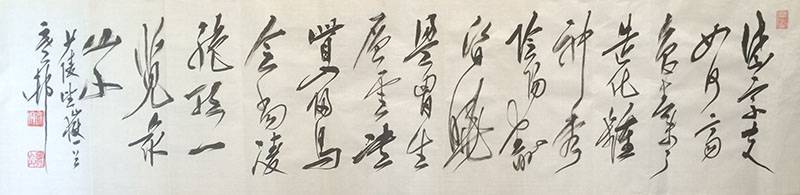 岱宗夫
如何齊
魯青未了
造化鍾
神秀
陰陽割
昏曉
盪胸生
層雲決
眥入歸鳥
會當凌
絕頂一
覽眾
山小
少陵望嶽